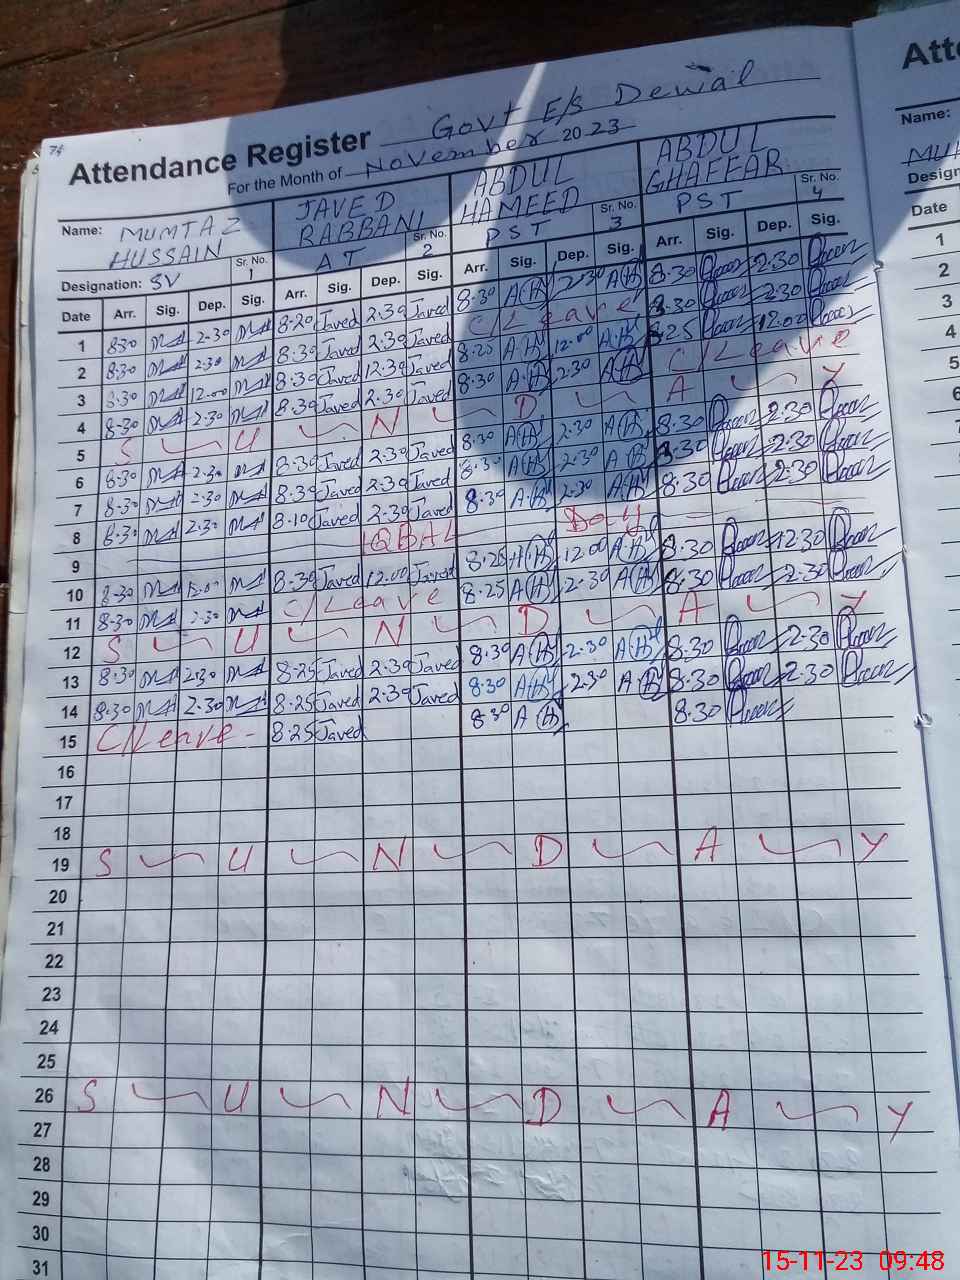 74
Attendance Register Govt E/s Dewal
For the Month of November 2023
Name: MUMTAZ HUSSAIN JAVED RABBANI ABDUL HAMEED ABDUL GHAFFAR
Designation: SV Sr. No. 1 AT Sr. No. 2 PST Sr. No. 3 PST Sr. No. 4
Date Arr. Sig. Dep. Sig. Arr. Sig. Dep. Sig. Arr. Sig. Dep. Sig. Arr. Sig. Dep. Sig.
1 8:30 2:30 8:20 Javed 2:30 Javed 8:30 A(H) 2:30 A(H) 8:30 2:30
2 8:30 2:30 8:30 Javed 2:30 Javed C/Leave 8:30 2:30
3 8:30 12:00 8:30 Javed 12:30 Javed 8:25 A(H) 12:00 A(H) 8:25 12:00
4 8:30 2:30 8:30 Javed 2:30 Javed 8:30 A(H) 2:30 A(H) C/Leave
5 S U N D A Y
6 8:30 2:30 8:30 Javed 2:30 Javed 8:30 A(H) 2:30 A(H) 8:30 2:30
7 8:30 2:30 8:30 Javed 2:30 Javed 8:30 A(H) 2:30 A(H) 8:30 2:30
8 8:30 2:30 8:10 Javed 2:30 Javed 8:30 A(H) 2:30 A(H) 8:30 2:30
9 IQBAL Day
10 8:30 8:30 Javed 12:00 Javed 8:25 A(H) 12:00 A(H) 8:30 12:30
11 8:30 2:30 C/Leave 8:25 A(H) 2:30 A(H) 8:30 2:30
12 S U N D A Y
13 8:30 2:30 8:25 Javed 2:30 Javed 8:30 A(H) 2:30 A(H) 8:30 2:30
14 8:30 2:30 8:25 Javed 2:30 Javed 8:30 A(H) 2:30 A(H) 8:30 2:30
15 C/Leave - 8:25 Javed 8:30 A(H) 8:30
16
17
18
19 S U N D A Y
20
21
22
23
24
25
26 S U N D A Y
27
28
29
30
31
Name:
Date
1
2
3
4
5
6
15-11-23 09:48